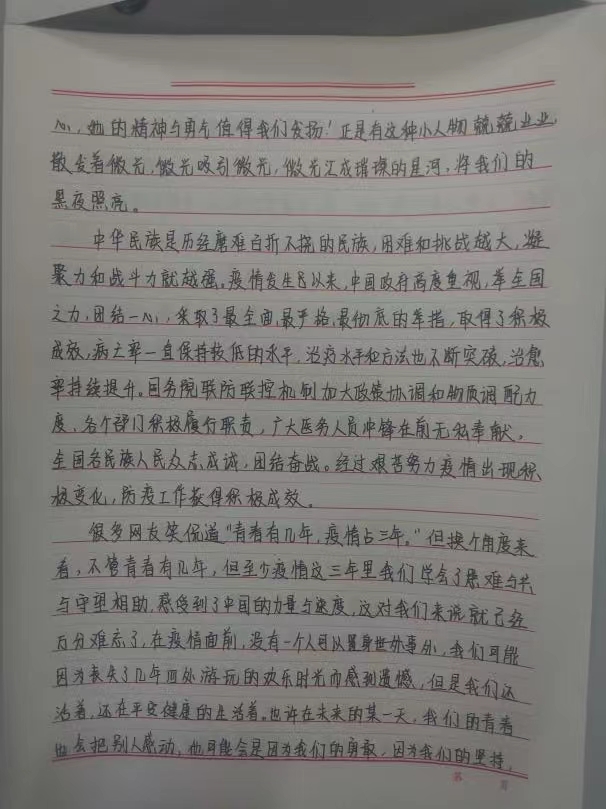 心，她的精神与勇气值得我们发扬！正是有这种小人物兢兢业业，
散发着微光，微光吸引微光，微光汇成璀璨的星河，将我们的
黑夜照亮。
中华民族是历经磨难百折不挠的民族，困难和挑战越大，凝
聚力和战斗力就越强。疫情发生以来，中国政府高度重视，举全国
之力，团结一心，采取了最全面，最严格，最彻底的举措，取得了积极
成效，病亡率一直保持较低的水平，治疗水平和方法也不断突破，治愈
率持续提升。国务院联防联控机制加大政策协调和物质调配力
度，各个部门积极履行职责，广大医务人员冲锋在前无私奉献。
全国各民族人民众志成诚，团结奋战。经过艰苦努力疫情出现积
极变化，防疫工作获得积极成效。
很多网友笑侃道“青春有几年，疫情占三年。”但换个角度来
看，不管青春有几年，但至少疫情这三年里我们学会了患难与共
与守望相助，感受到了中国的力量与速度，这对我们来说就已经
万分难忘了，在疫情面前，没有一个人可以置身世外事外，我们可能
因为丧失了几年四处游玩的欢乐时光而感到遗憾，但是我们还
活着，还在平安健康的生活着。也许在未来的某一天，我们的青春
也会把别人感动，也可能会是因为我们的勇敢，因为我们的坚持，
第 页